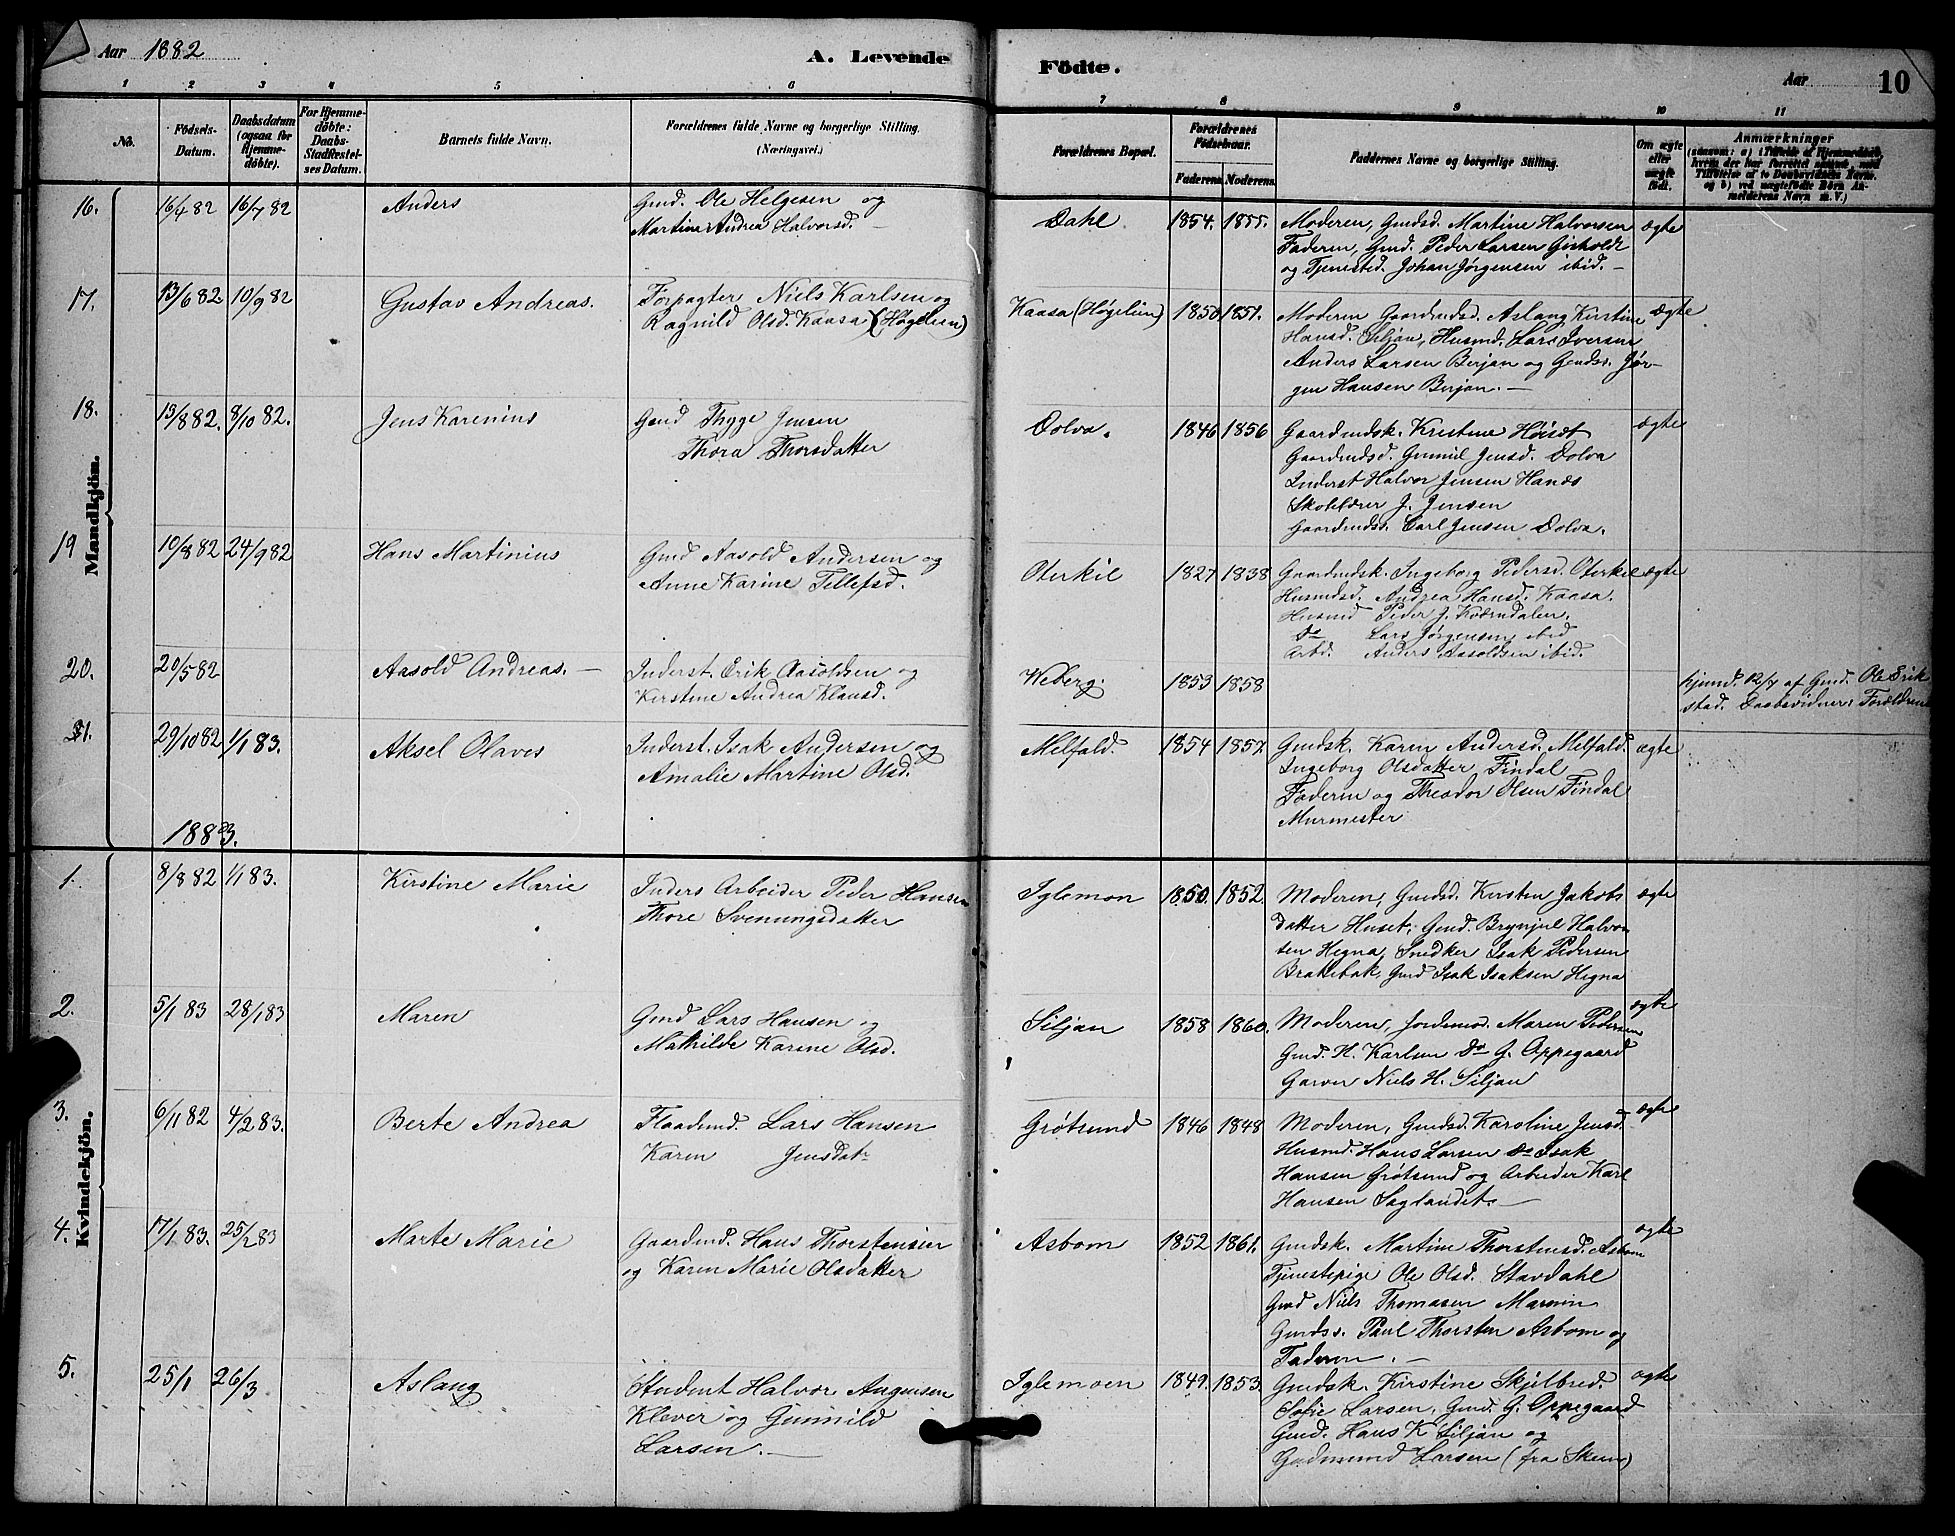 Aar 1882
A. Levende Födte.
Aar 10
1 2 3 4 5 6 7 8 9 10 11
No.
Födsels-Datum.
Daabsdatum (ogsaa for Hjemmedöbte).
For Hjemmedöbte: Daabs-Stadfæstelses Datum.
Barnets fulde Navn.
Forældrenes fulde Navne og borgerlige Stilling.
(Næringsvei.)
Forældrenes Bopæl.
Forældrenes Födselsaar.
Faderens. Moderens.
Faddernes Navne og borgerlige Stilling.
Om ægte eller uægte født.
Anmærkninger
Mandkjön.
16. 16/4 82 16/7 82 Anders
Gmd. Ole Helgesen og
Martine Andrea Halvorsd. –
Dahl 1854. 1855.
Moderen, Gmdsd. Martine Halvorsen
Faderen, Gmd. Peder Larsen Gisholdt
og Tjenested. Johan Jørgensen ibid. –
ægte
17. 13/6 82 10/9 82 Gustav Andreas.
Forpagter Niels Karlsen og
Ragnild Olsd. Kaasa (Høgelien)
Kaasa (Høgelien) 1850 1851.
Moderen Gaardmdsd. Aslaug Kirstine
Hansd. Siljan, Husmd. Lars Iversen
Anders Larsen Berjan og Gmdss. Jør-
gen Hansen Berjan. –
ægte
18. 13/8 82. 8/10 82. Jens Karenius
Gmd Thyge Jensen
Thora Thorsdatter
Dolva. 1846 1856
Gaardmdsk. Kristine Høiset
Gaardmdsd. Gunnil Jensd. Dolva
Inderst Halvor Jensen Hanås
Skolelærer J. Jensen
Gaardmdss. Carl Jensen Dolva.
ægte
19 10/8 82 24/9 82 Hans Martinius
Gmd Aasold Andersen og
Anne Karine Tellefsd.
Oterkil 1827 1838
Gaardmdsk. Ingeborg Pedersd. Oterkil
Husmdsd. Andrea Hansd. Kaasa.
Husmd Peder J. Kværndalen.
Do Lars Jørgensen ibid
Arbd. Anders Aasoldsen ibid.
ægte
20. 20/5 82 Aasold Andreas. –
Inderst. Erik Aasoldsen og
Kirstine Andrea Klausd.
Weberg. 1853 1858
hjemd. 12/7 af Gmd. Ole Erik
stad. Daabsvidner: Forældrene
21. 29/10 82 1/1 83. Aksel Olaves
Inderst. Isak Andersen og
Amalie Martine Olsd.
Melfald. 1854 1857.
Gmdsk. Karen Andersd. Melfald.
Ingeborg Olsdatter Findal
Faderen og Theodor Olsen Findal
Murmester
ægte
1883.
Kvindekjön.
1. 8/8 82 1/1 83. Kirstine Marie
Inders Arbeider Peder Hansen
Thore Svenningsdatter
Iglemon 1850. 1852.
Moderen, Gmdsd. Kirsten Jakobs
datter Huset, Gmd. Brynjul Halvor
sen Hegna, Snedker Isak Pedersen
Brakebak, Gmd Isak Isaksen Hegna
ægte
2. 5/1 83 28/1 83 Maren
Gmd Lars Hansen og
Mathilde Karine Olsd.
Siljan 1858 1860.
Moderen, Jordemod. Maren Pedersen
Gmd. H. Karlsen Do G. Oppegaard
Garver Niels H. Siljan
ægte
3. 6/11 82 4/2 83. Berte Andrea
Flaademd. Lars Hansen
Karen Jensdatr
Grøtsund 1846 1848
Moderen, Gmdsd. Karoline Jensd.
Husmd. Hans Larsen Do Isak
Hansen Grøtsund og Arbeider Karl
Hansen Saglandet. –
ægte
4. 17/1 83. 25/2 83 Marte Marie
Gaardmd. Hans Thorstensen
og Karen Marie Olsdatter
Asbom 1852 1861.
Gmdsk. Martine Thorstensd. Asbom
Tjenestepige Ole Olsd. Stavdahl
Gmd Niels Thomasen Marenin
Gmdss. Paul Thorsten Asbom og
Faderen. –
ægte
5. 25/1 26/3 Aslaug
Student Halvor Augensen
Klever og Gunnild
Larsen. –
Iglemoen 1849. 1853.
Gmdsk. Kirstine Skjelbred.
Sofie Larsen, Gmd. G. Oppegaard
Gmd. Hans K Siljan og
Gudmund Larsen (fra Skien)
ægte